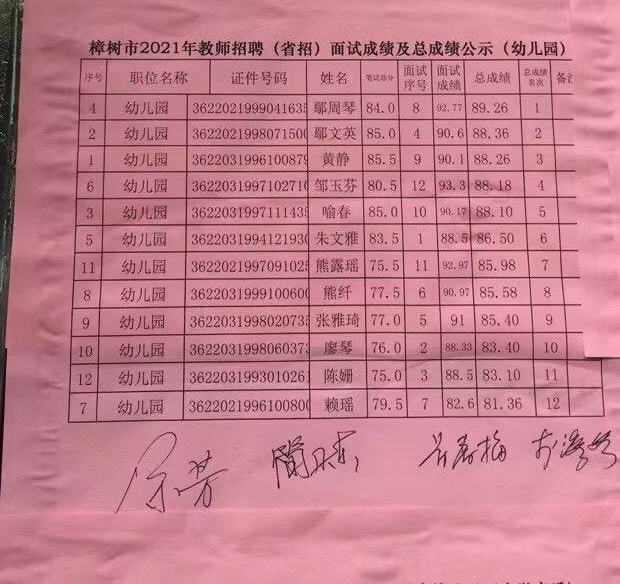 樟树市2021年教师招聘（省招）面试成绩及总成绩公示（幼儿园）
序号 职位名称 证件号码 姓名 笔试总分 面试序号 面试成绩 总成绩 总成绩名次
4 幼儿园 362202199904163 鄢周琴 84.0 8 92.77 89.26 1
2 幼儿园 3622021998071500 鄢文英 85.0 4 90.6 88.36 2
1 幼儿园 3622031996100879 黄静 85.5 9 90.1 88.26 3
6 幼儿园 3622031997102710 邹玉芬 80.5 12 93.3 88.18 4
3 幼儿园 3622031997111435 喻春 85.0 10 90.17 88.10 5
5 幼儿园 3622031994121930 朱文雅 83.5 1 88.5 86.50 6
11 幼儿园 3622021997091025 熊露瑶 75.5 11 92.97 85.98 7
8 幼儿园 3622031999100600 熊纤 77.5 6 90.97 85.58 8
9 幼儿园 3622031998020735 张雅琦 77.0 5 91 85.40 9
10 幼儿园 3622031998060373 廖琴 76.0 2 88.33 83.40 10
12 幼儿园 3622031993010261 陈姗 75.0 3 88.5 83.10 11
7 幼儿园 3622021996100800 赖瑶 79.5 7 82.6 81.36 12